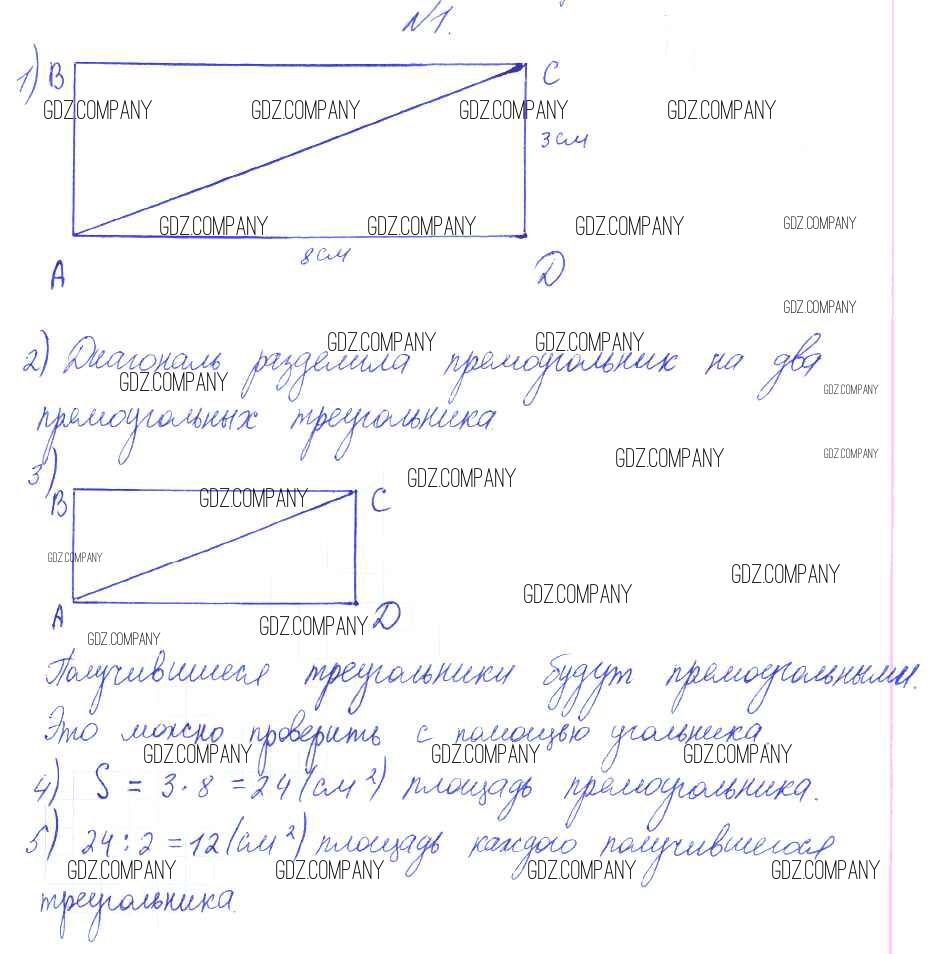 №1.
1) B C
GDZ.COMPANY GDZ.COMPANY GDZ.COMPANY GDZ.COMPANY
3 см
GDZ.COMPANY GDZ.COMPANY GDZ.COMPANY GDZ.COMPANY
8 см
A D
GDZ.COMPANY
GDZ.COMPANY GDZ.COMPANY
2) Диагональ разделила прямоугольник на два
GDZ.COMPANY GDZ.COMPANY
прямоугольных треугольника.
GDZ.COMPANY GDZ.COMPANY
3)
GDZ.COMPANY
B GDZ.COMPANY C
GDZ.COMPANY
GDZ.COMPANY
GDZ.COMPANY
A GDZ.COMPANY D
GDZ.COMPANY
Получившиеся треугольники будут прямоугольными.
Это можно проверить с помощью угольника.
GDZ.COMPANY GDZ.COMPANY GDZ.COMPANY
4) S = 3 · 8 = 24 (см²) площадь прямоугольника.
5) 24 : 2 = 12 (см²) площадь каждого получившегося
GDZ.COMPANY GDZ.COMPANY GDZ.COMPANY GDZ.COMPANY
треугольника.